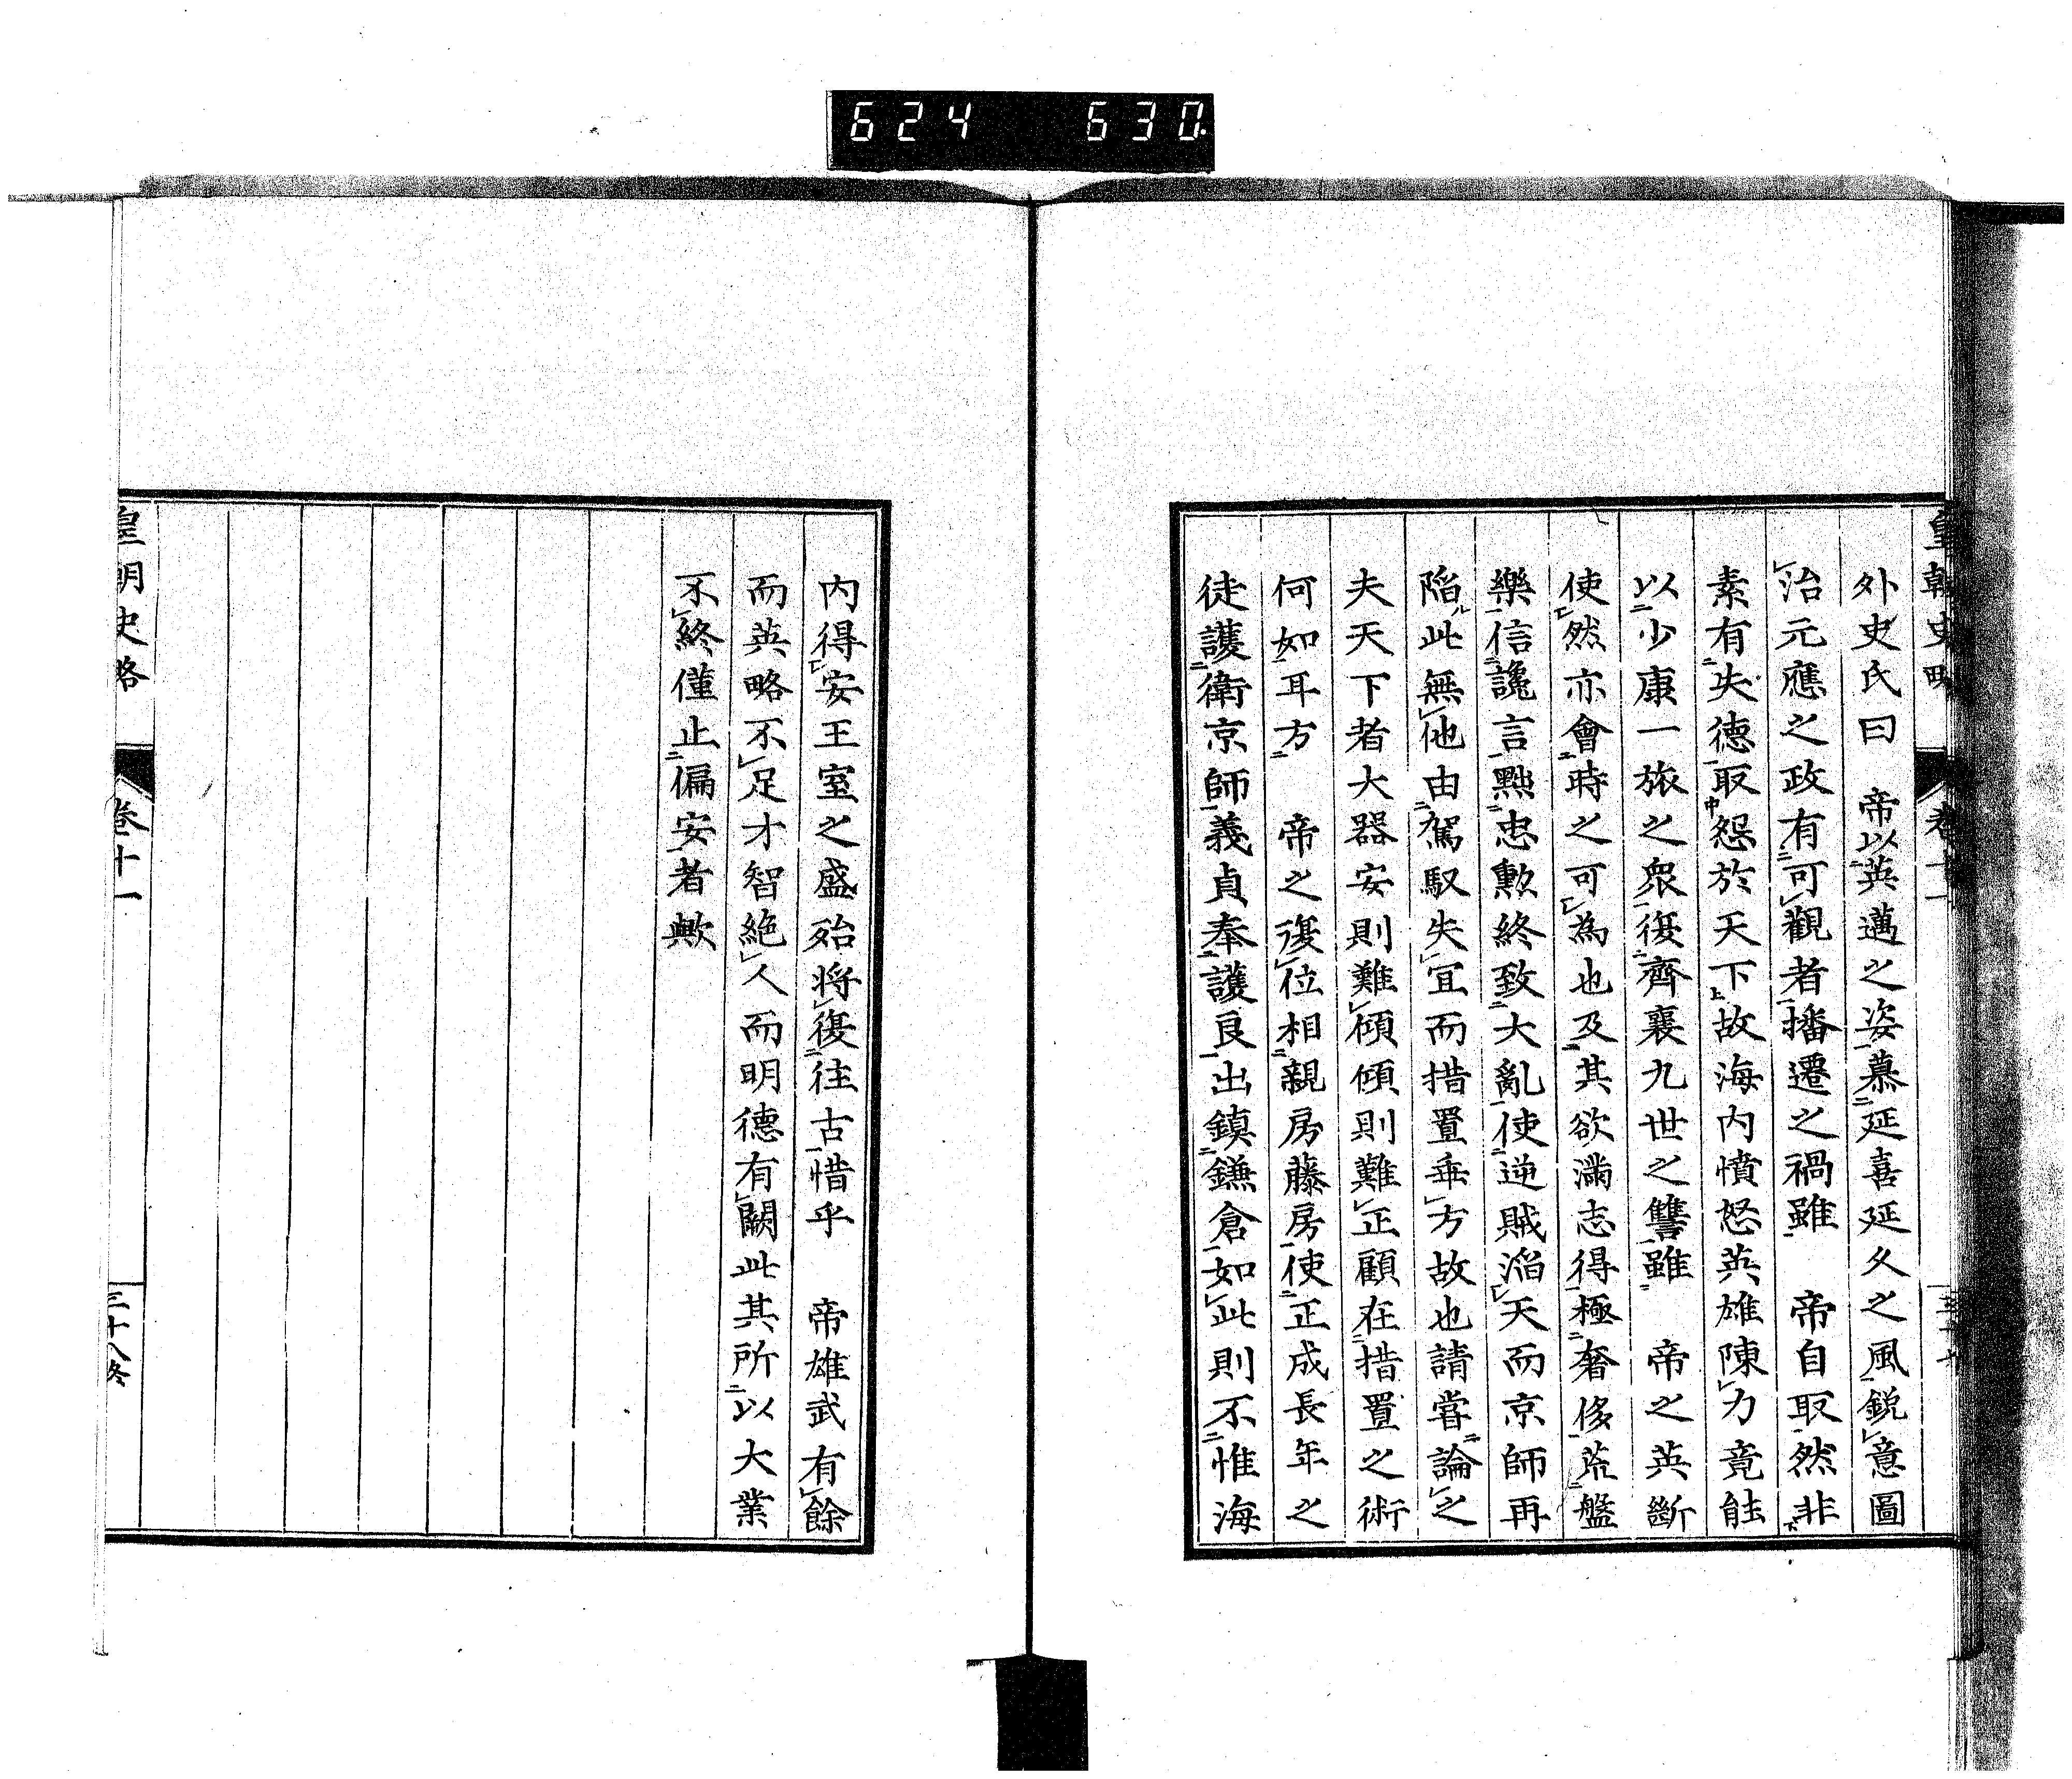 624 630
皇朝史略 卷十一
外史氏曰 帝以英邁之姿慕延喜延久之風銳意圖
治元應之政有可觀者播遷之禍雖 帝自取然非
素有失德取怨於天下故海內憤怒英雄陳力竟能
以少康一旅之衆復齊襄九世之讐雖 帝之英斷
使然亦會時之可為也及其欲滿志得極奢侈荒盤
樂信讒言黜忠勲終致大亂使逆賊滔天而京師再
陷此無他由駕馭失宜而措置乖方故也請嘗論之
夫天下者大器安則難傾傾則難正顧在措置之術
何如耳方 帝之復位相親房藤房使正成長年之
徒護衛京師義貞奉護良出鎮鎌倉如此則不惟海
內得安王室之盛殆將復往古惜乎 帝雄武有餘
而英略不足才智絶人而明德有闕此其所以大業
不終僅止偏安者歟
皇朝史略 卷十一 三十八終